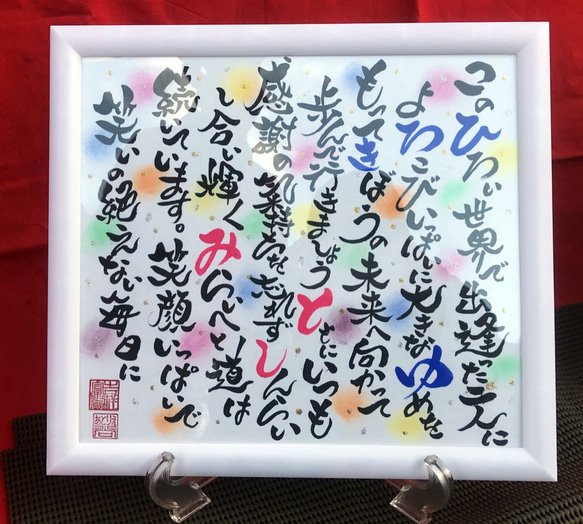 このひろい世界で出逢たえに
よろこびいっぱいに大きなゆめを
もってきぼうの未来へ向かって
歩んで行きましょうともにいつも
感謝の気持ちを忘れずしんらい
し合い輝くみらいへと道は
続いています。笑顔いっぱいで
笑いの絶えない毎日に